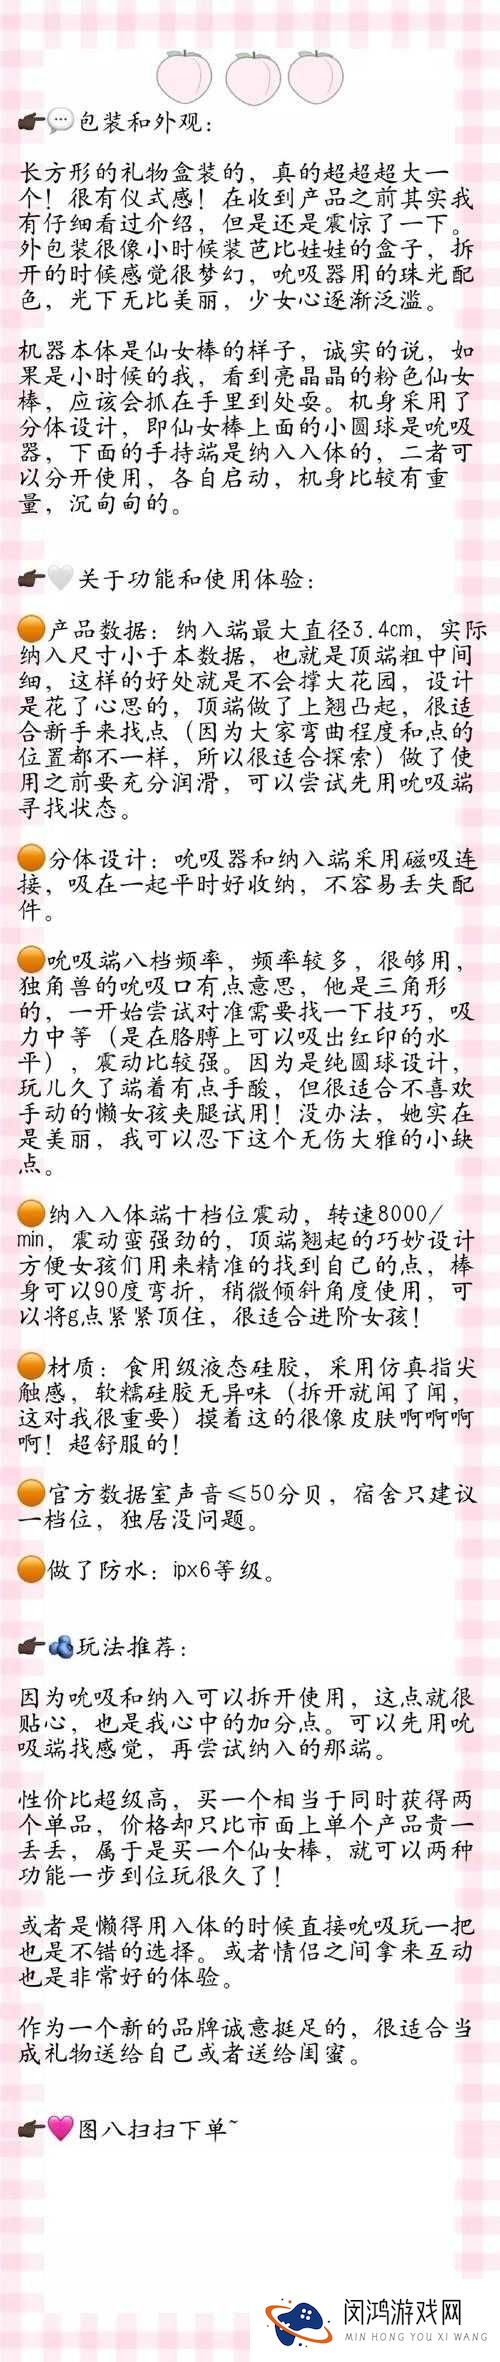 包装和外观：
长方形的礼物盒装的，真的超超超大一
个！很有仪式感！在收到产品之前其实我
有仔细看过介绍，但是还是震惊了一下。
外包装很像小时候装芭比娃娃的盒子，拆
开的时候感觉很梦幻，吮吸器用的珠光配
色，光下无比美丽，少女心逐渐泛滥。
机器本体是仙女棒的样子，诚实的说，如
果是小时候的我，看到亮晶晶的粉色仙女
棒，应该会抓在手里到处耍。机身采用了
分体设计，即仙女棒上面的小圆球是吮吸
器，下面的手持端是纳入入体的，二者可
以分开使用，各自启动，机身比较有重
量，沉甸甸的。
关于功能和使用体验：
产品数据：纳入端最大直径3.4cm，实际
纳入尺寸小于本数据，也就是顶端粗中间
细，这样的好处就是不会撑大花园，设计
是花了心思的，顶端做了上翘凸起，很适
合新手来找点（因为大家弯曲程度和点的
位置都不一样，所以很适合探索）做了使
用之前要充分润滑，可以尝试先用吮吸端
寻找状态。
分体设计：吮吸器和纳入端采用磁吸连
接，吸在一起平时好收纳，不容易丢失配
件。
吮吸端八档频率，频率较多，很够用，
独角兽的吮吸口有点意思，他是三角形
的，一开始尝试对准需要找一下技巧，吸
力中等（是在胳膊上可以吸出红印的水
平），震动比较强。因为是纯圆球设计，
玩儿久了端着有点手酸，但很适合不喜欢
手动的懒女孩夹腿试用！没办法，她实在
是美丽，我可以忍下这个无伤大雅的小缺
点。
纳入入体端十档位震动，转速8000/
min，震动蛮强劲的，顶端翘起的巧妙设计
方便女孩们用来精准的找到自己的点，棒
身可以90度弯折，稍微倾斜角度使用，可
以将g点紧紧顶住，很适合进阶女孩！
材质：食用级液态硅胶，采用仿真指尖
触感，软糯硅胶无异味（拆开就闻了闻，
这对我很重要）摸着这的很像皮肤啊啊啊
啊！超舒服的！
官方数据室声音≤50分贝，宿舍只建议
一档位，独居没问题。
做了防水：ipx6等级。
玩法推荐：
因为吮吸和纳入可以拆开使用，这点就很
贴心，也是我心中的加分点。可以先用吮
吸端找感觉，再尝试纳入的那端。
性价比超级高，买一个相当于同时获得两
个单品，价格却只比市面上单个产品贵一
丢丢，属于是买一个仙女棒，就可以两种
功能一步到位玩很久了！
或者是懒得用入体的时候直接吮吸玩一把
也是不错的选择。或者情侣之间拿来互动
也是非常好的体验。
作为一个新的品牌诚意挺足的，很适合当
成礼物送给自己或者送给闺蜜。
图八扫扫下单~
闵鸿游戏网
MIN HONG YOU XI WANG